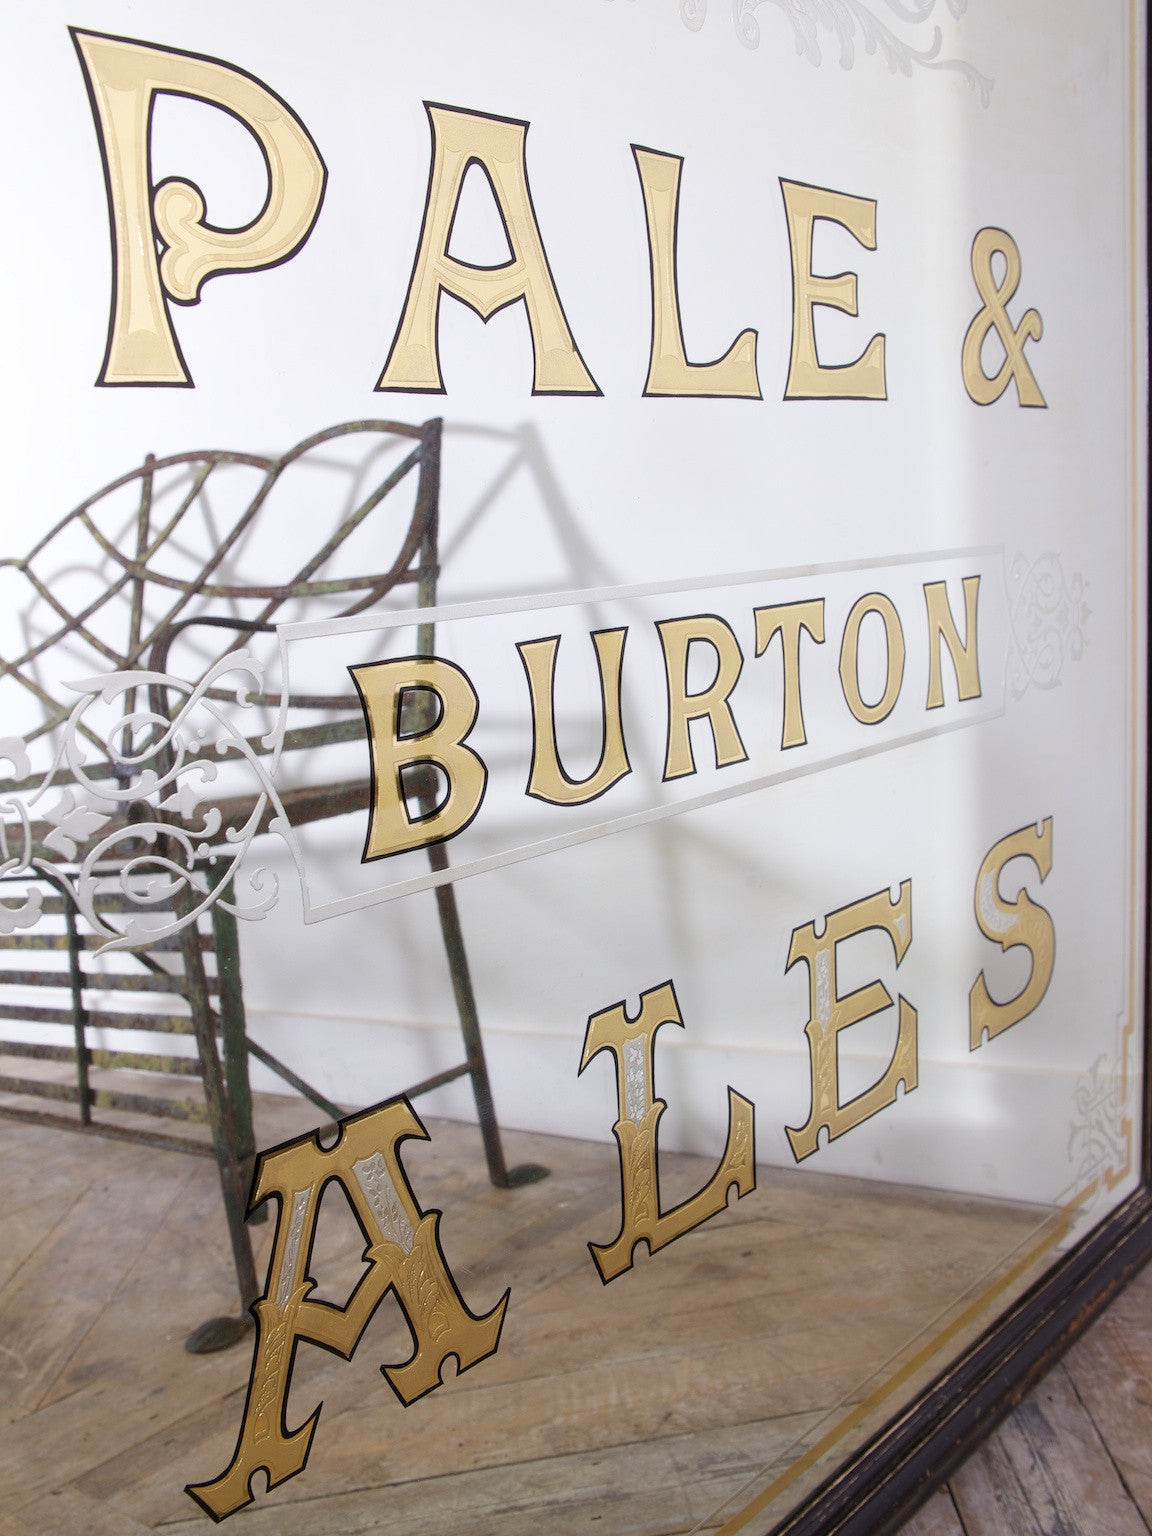 PALE &
BURTON
ALES